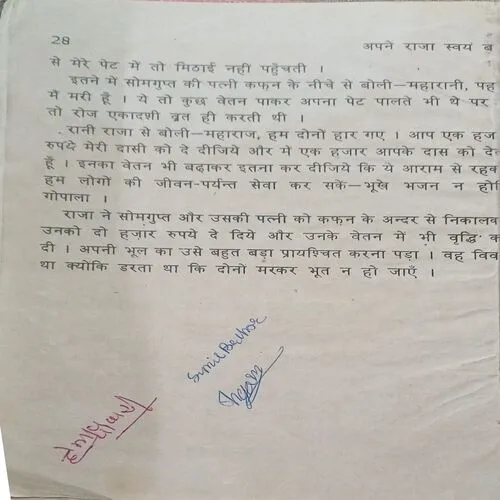 28
अपने राजा स्वयं ब
से मेरे पेट में तो मिठाई नहीं पहुँचती ।
इतने में सोमगुप्त की पत्नी कफ़न के नीचे से बोली—महारानी, पह
मैं मरी हूँ । ये तो कुछ वेतन पाकर अपना पेट पालते भी थे पर
तो रोज एकादशी व्रत ही करती थी ।
रानी राजा से बोली—महाराज, हम दोनों हार गए । आप एक हज
रुपये मेरी दासी को दे दीजिये और मैं एक हजार आपके दास को दे
हूँ । इनका वेतन भी बढ़ाकर इतना कर दीजिये कि ये आराम से रहक
हम लोगों की जीवन-पर्यन्त सेवा कर सकें—भूषे भजन न हो
गोपाला ।
राजा ने सोमगुप्त और उसकी पत्नी को कफ़न के अन्दर से निकालव
उनको दो हज़ार रुपये दे दिये और उनके वेतन में भी वृद्धि क
दी । अपनी भूल का उसे बहुत बड़ा प्रायश्चित करना पड़ा । वह विव
था क्योंकि डरता था कि दोनों मरकर भूत न हो जाएँ ।